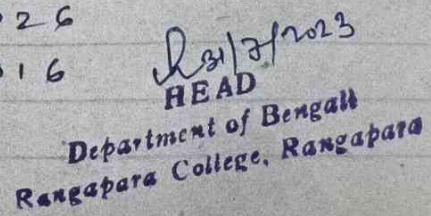 26
16
31/7/2023
HEAD
Department of Bengali
Rangapara College, Rangapara